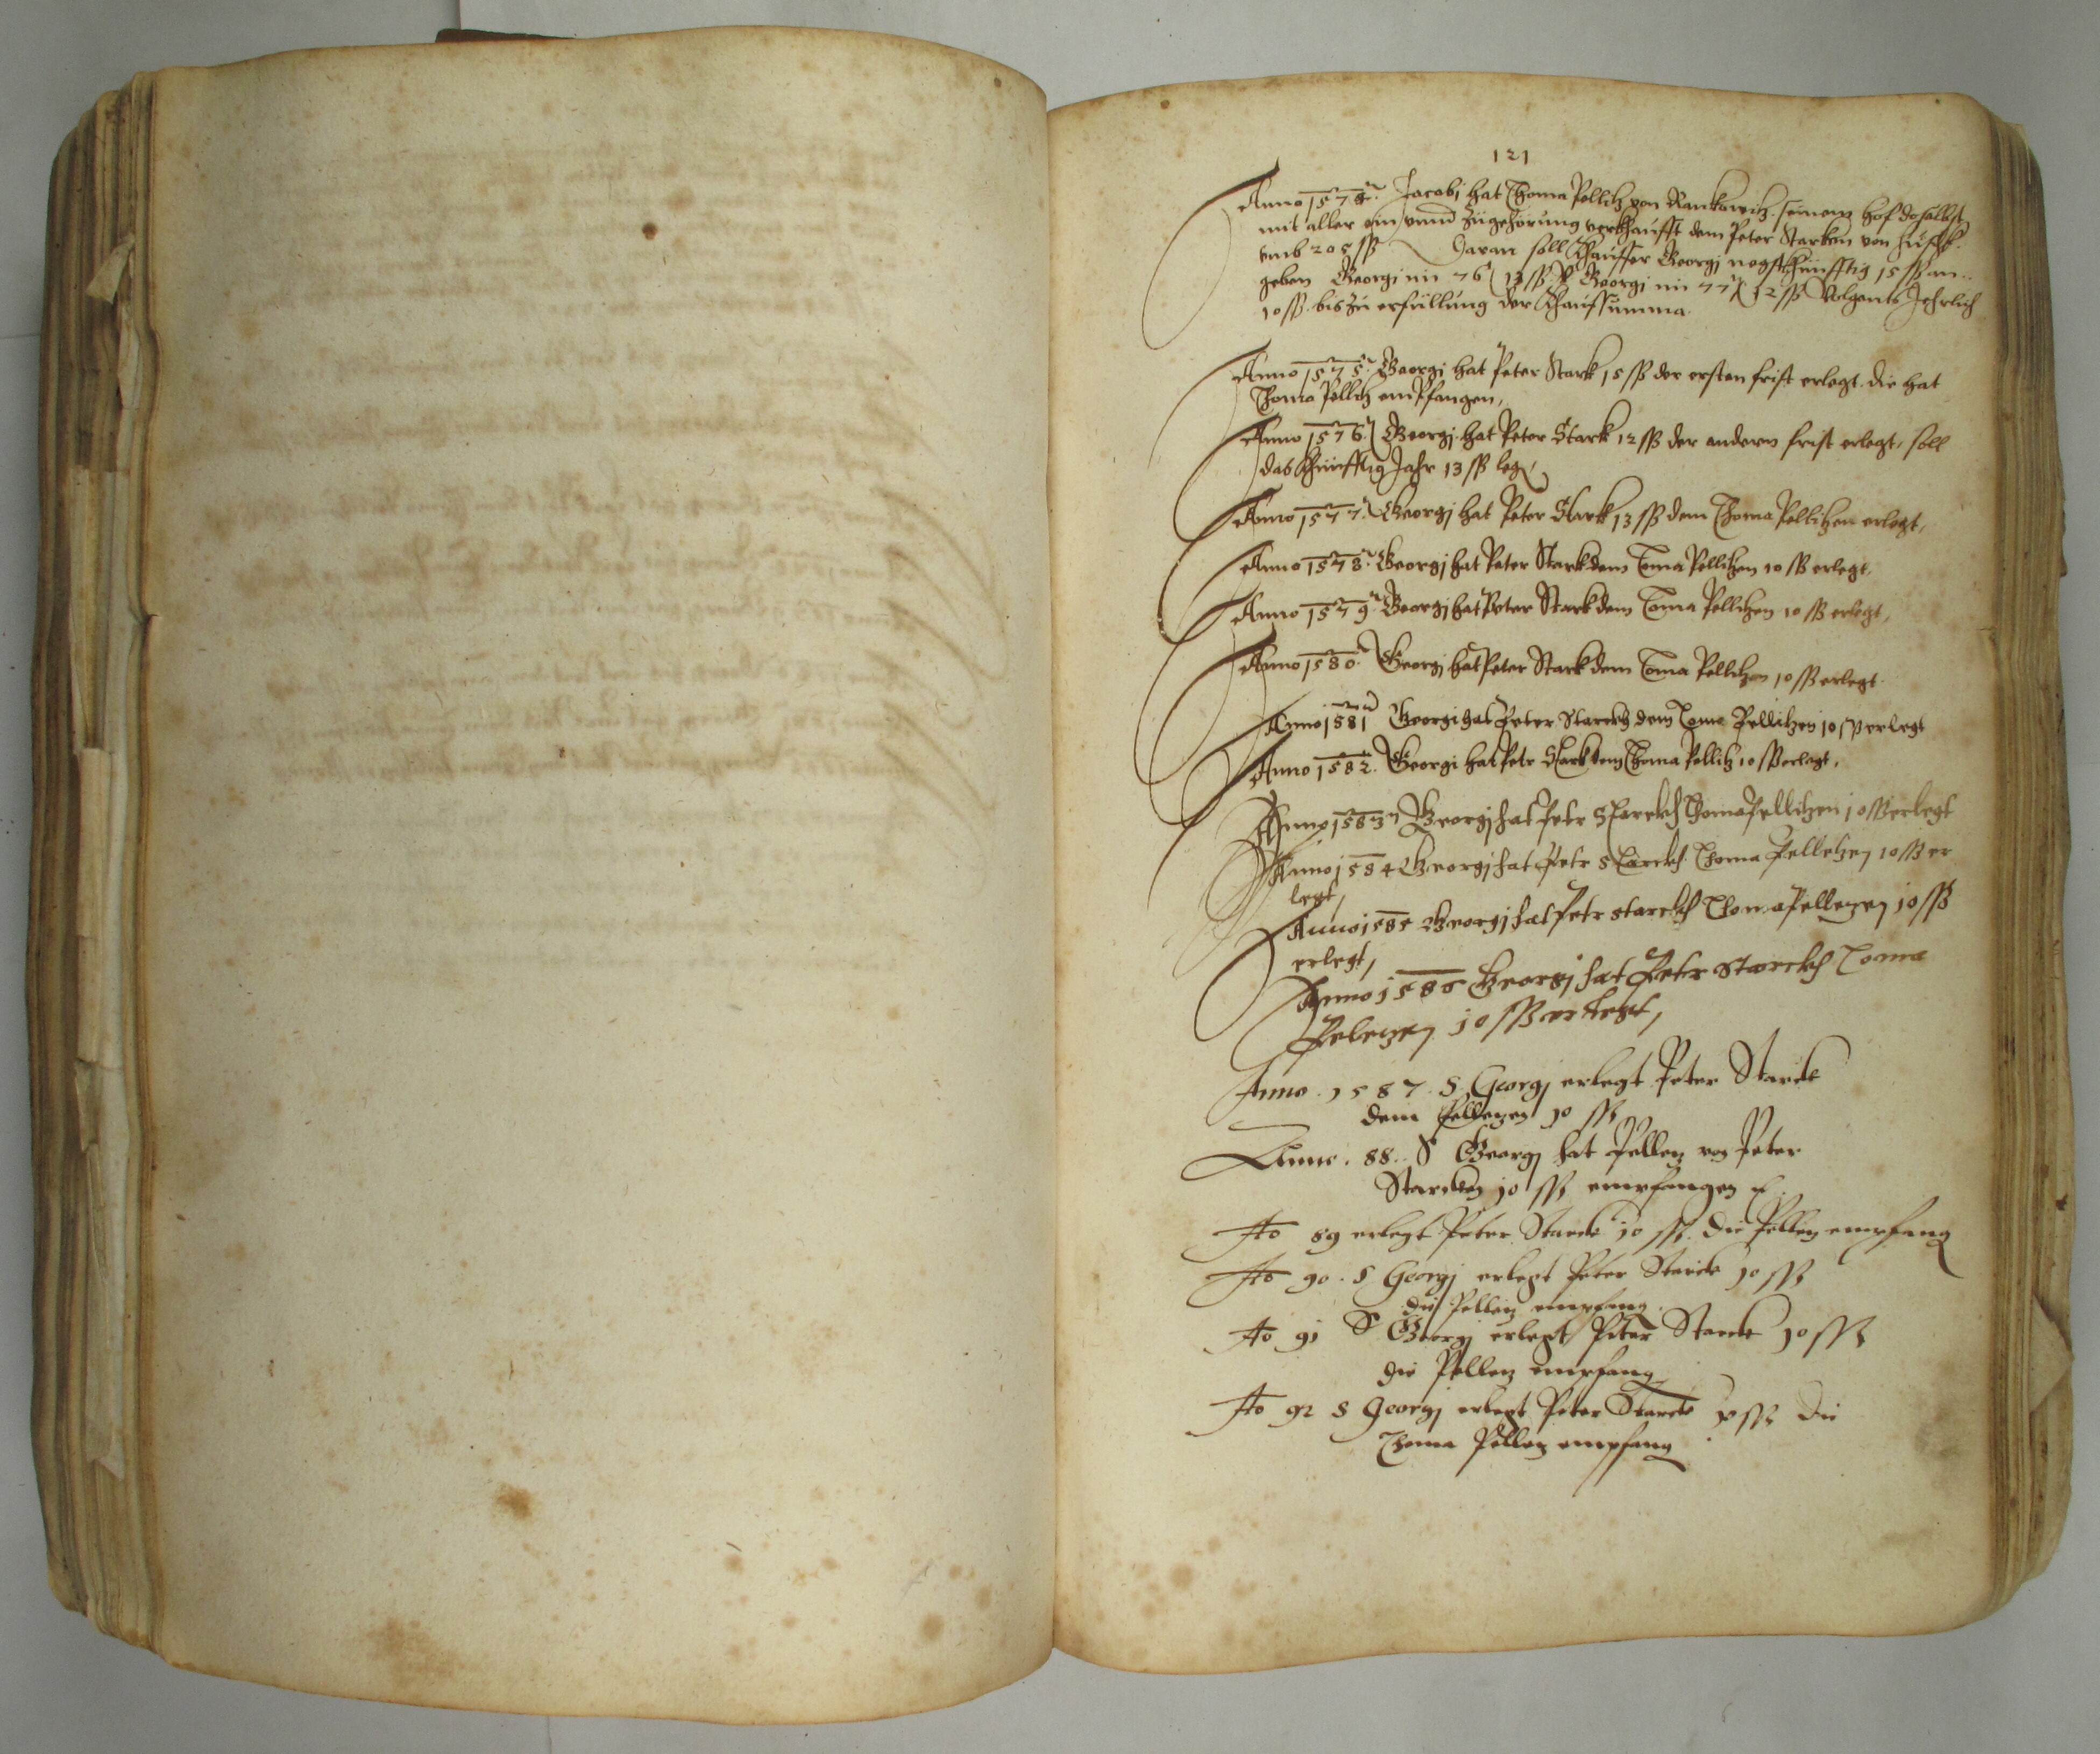 121
Anno 1574. Jacobj hat Thoma Pellitz von Rankowitz seinenn hof doselbst
mit aller ein unnd zugehörung verkhaufft dem Peter Starken von
umb 205 ß Daran soll Khauffer Georgj negstkhünfftig 15 ß an..
geben Georgi im 76 13 ß Georgi im 77 12 ß Volgents Jehrlich
10 ß. bis zu erfüllung der Khaufsumma.
Anno 1575. Georgj hat Peter Stark 15 ß der ersten frist erlegt. die hat
Thoma Pellitz empfangen,
Anno 1576. Georgj hat Peter Stark 12 ß der andern frist erlegt, soll
das Khünfftig Jahr 13 ß leg
Anno 1577. Georgj hat Peter Stark 13 ß dem Thoma Pellitzen erlegt,
Anno 1578. Georgj hat Peter Stark dem Toma Pellitzen 10 ß erlegt,
Anno 1579. Georgj hat Peter Stark dem Toma Pellitzen 10 ß erlegt,
Anno 1580. Georgj hat Peter Stark dem Toma Pellitzen 10 ß erlegt.
Anno 1581 Georgi hat Peter Starckh dem Toma Pellitzen 10 ß erlegt
Anno 1582. Georgi hat Petr Stark dem Thoma Pellitz 10 ß erlegt,
Anno 1583 Georgj hat Petr Starckh Thoma Pellitzen 10 ß erlegt
Anno 1584 Georgj hat Petr Starckh Thoma Pelletzen 10 ß er
legt,
Anno 1585 Georgj hat Petr Starckh Thoma Pellezen 10 ß
erlegt,
Anno 1586 Georgj hat Peter Starckh Toma
Pelezen 10 ß erlegt,
Anno . 1587. S Georgj erlegt Peter Starck
dem Pellezen 10 ß
Anno. 88. S Georgj hat Pellez von Peter
Starcken 10 ß empfangen
Ao 89 erlegt Peter Starck 10 ß. die Pellez empfang
Ao 90. S Georgj erlegt Peter Starck 10 ß
die Pellez empfang.
Ao 91 S Georgj erlegt Peter Starck 10 ß
die Pellez empfang
Ao 92 S Georgj erlegt Peter Starck 10 ß die
Thoma Pellez empfang